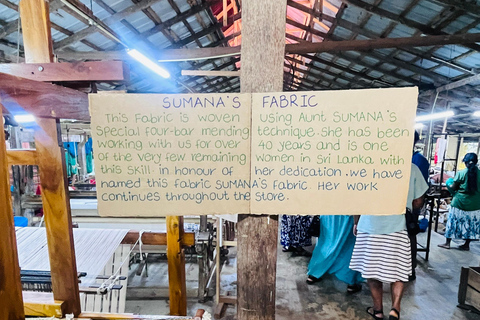 SUMANA'S FABRIC
This Fabric is woven using Aunt SUMANA'S
Special four-bar mending technique. she has been
working with us for over 40 years and is one
of the very few remaining women in Sri Lanka with
this skill in honour of her dedication. we have
named this fabric SUMANA'S fabric. Her work
continues throughout the store.